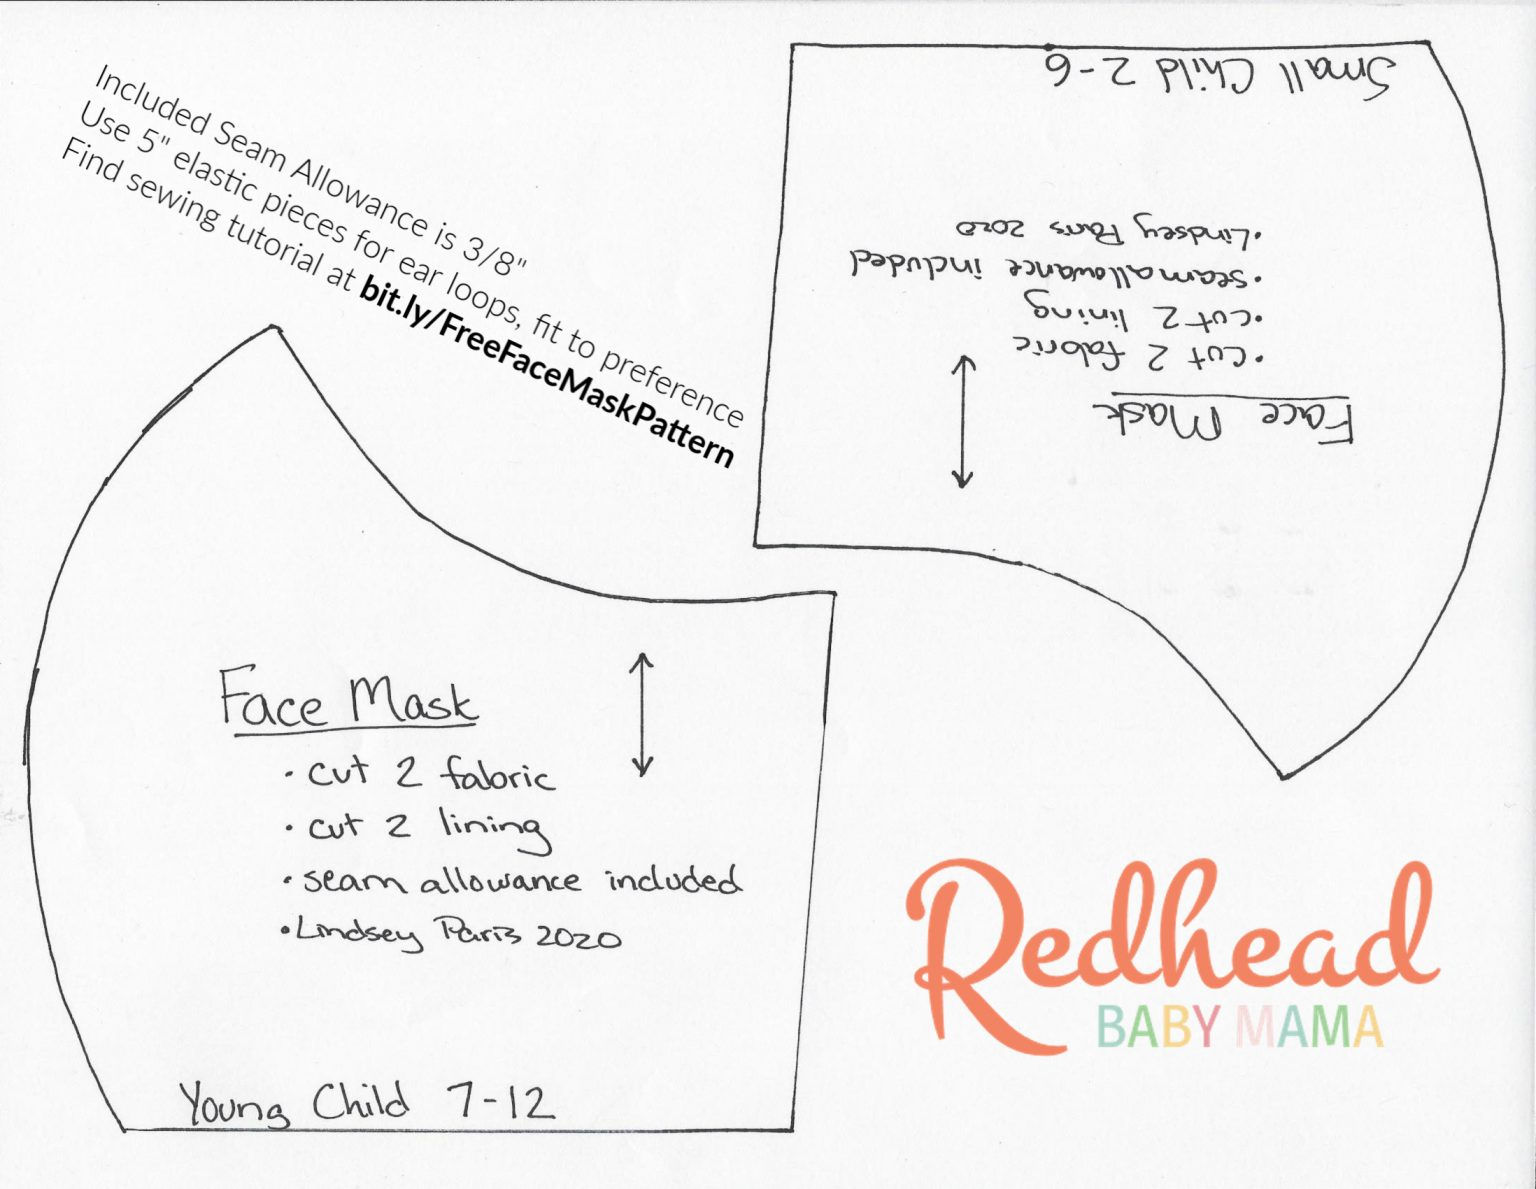 Included Seam Allowance is 3/8"
Use 5" elastic pieces for ear loops, fit to preference
Find sewing tutorial at bit.ly/FreeFaceMaskPattern
Face Mask
• cut 2 fabric
• cut 2 lining
• seam allowance included
• Lindsey Paris 2020
Small Child 2-6
Face Mask
• cut 2 fabric
• cut 2 lining
• seam allowance included
• Lindsey Paris 2020
Young Child 7-12
Redhead
BABY MAMA